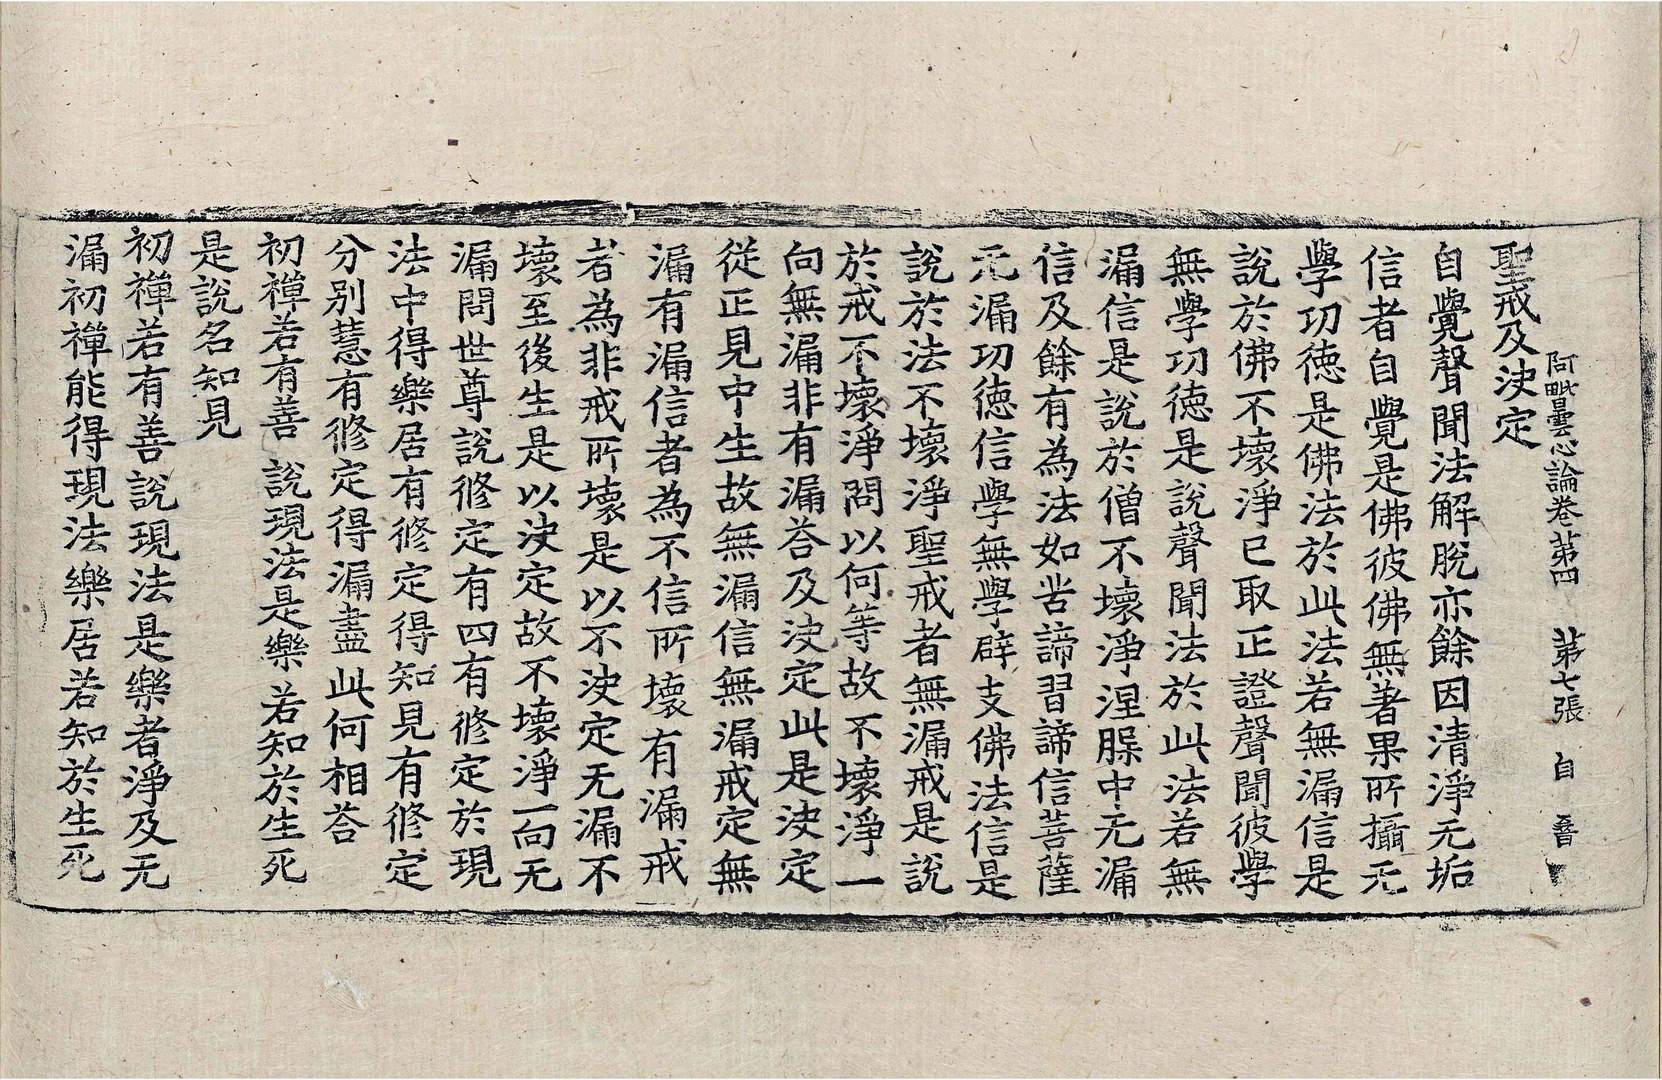 阿毗曇心論卷第四　第七張　自
聖戒及決定
自覺聲聞法解脫亦餘因清淨无垢
信者自覺是佛彼佛無著果所攝无
學功德是佛法於此法若無漏信是
說於佛不壞淨已取正證聲聞彼學
無學功德是說聲聞法於此法若無
漏信是說於僧不壞淨涅脲中无漏
信及餘有為法如苦諦習諦信菩薩
无漏功德信學無學辟支佛法信是
說於法不壞淨聖戒者無漏戒是說
於戒不壞淨問以何等故不壞淨一
向無漏非有漏荅及決定此是決定
從正見中生故無漏信無漏戒定無
漏有漏信者為不信所壞有漏戒
若為非戒所壞是以不決定无漏不
壞至後生是以決定故不壞淨一向无
漏問世尊說修定有四有修定於現
法中得樂居有修定得知見有修定
分別慧有修定得漏盡此何相荅
初禪若有善　說現法是樂　若知於生死
是說名知見
初禪若有善說現法是樂者淨及无
漏初禪能得現法樂居若知於生死